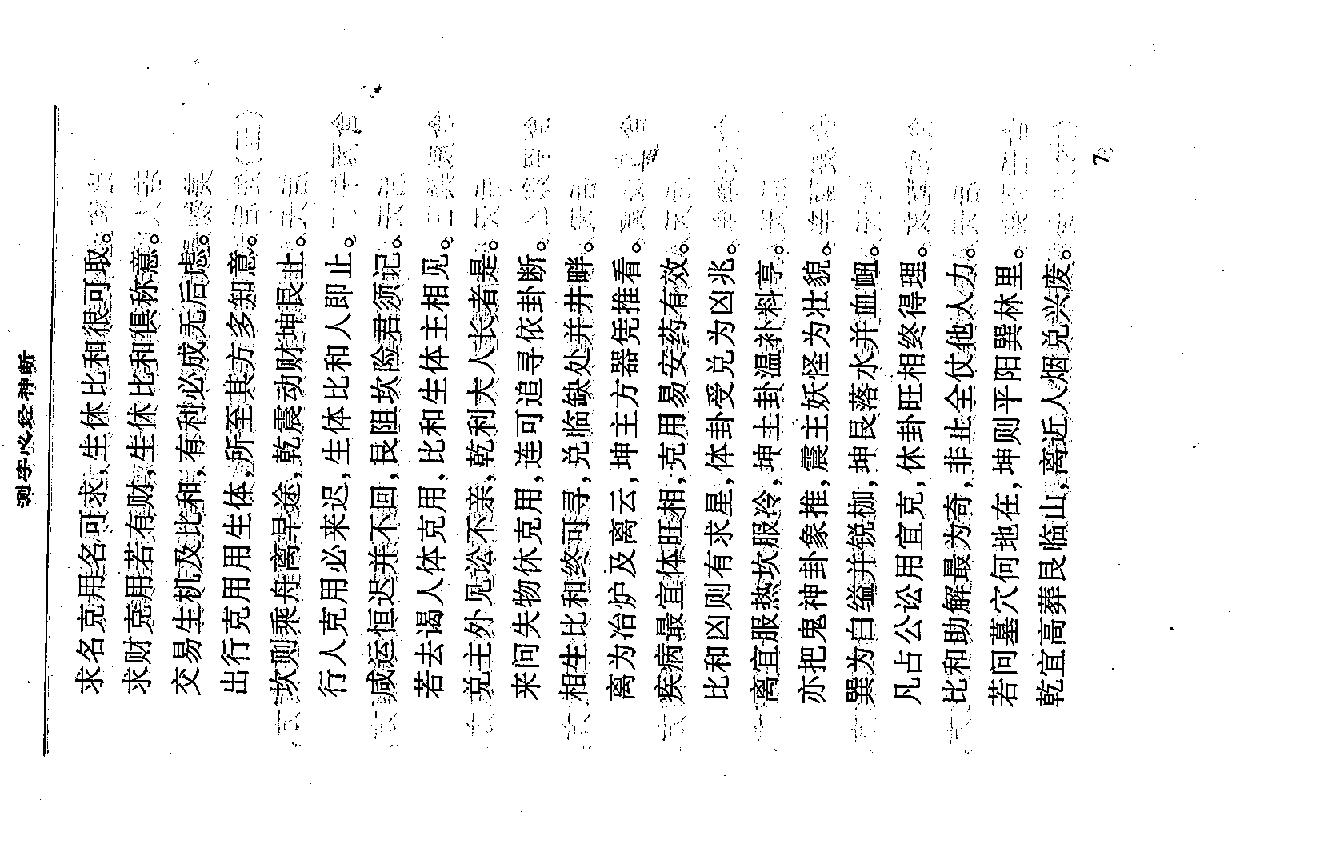 测字心经神断
求名克用名可求,生休比和很可取。
求财克用若有财,生休比和俱称意。
交易生机及比和,有利必成无后虑。
出行克用用生体,所至其方多知意。
坎则乘舟离旱途,乾震动财坤艮止。
行人克用必来迟,生体比和人即止。
咸运恒迟并不回,艮阻坎险君须记。
若去谒人体克用,比和生体主相见。
兑主外见讼不亲,乾利大人长者是。
来问失物休克用,连可追寻依卦断。
相生比和终可寻,兑临缺处并井畔。
离为冶炉及离云,坤主方器凭推看。
疾病最宜体旺相,克用易安药有效。
比和凶则有求星,体卦受兑为凶兆。
离宜服热坎服冷,坤土卦温补料亨。
亦把鬼神卦象推,震主妖怪为壮貌。
巽为自缢并锐枷,坤艮落水并血衄。
凡占公讼用宜克,休卦旺相终得理。
比和助解最为奇,非止全仗他人力。
若问墓穴何地在,坤则平阳巽林里。
乾宜高葬艮临山,离近人烟兑兴废。
7